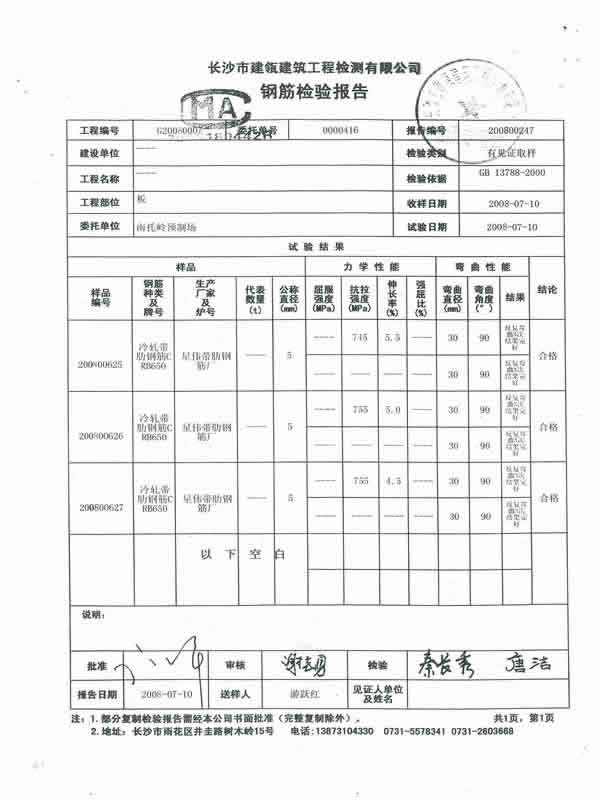 长沙市建瓴建筑工程检测有限公司
钢筋检验报告
MA
工程编号 委托单号 0000416 报告编号 200800247
建设单位 —— 检验类别 有见证取样
工程名称 —— 检验依据 GB 13788-2000
工程部位 板 收样日期 2008-07-10
委托单位 南托岭预制场 试验日期 2008-07-10
试 验 结 果
样品 力 学 性能 弯 曲 性能 结论
样品编号 钢筋种类及牌号 生产厂家及炉号 代表数量(t) 公称直径(mm) 屈服强度(MPa) 抗拉强度(MPa) 伸长率(%) 强屈比(%) 弯曲直径(mm) 弯曲角度(°) 结果
200800625 冷轧带肋钢筋CRB650 星伟带肋钢筋厂 —— 5 —— 745 5.5 —— 30 90 合格
—— —— —— —— 30 90
200800626 冷轧带肋钢筋CRB650 星伟带肋钢筋厂 —— 5 —— 755 5.0 —— 30 90 合格
—— —— —— —— 30 90
200800627 冷轧带肋钢筋CRB650 星伟带肋钢筋厂 —— 5 —— 755 4.5 —— 30 90 合格
—— —— —— —— 30 90
以 下 空 白
说明:
批准 审核 检验 秦长秀 唐洁
报告日期 2008-07-10 送样人 游跃红 见证人单位及姓名
注: 1. 部分复制检验报告需经本公司书面批准(完整复制除外)。 共1页, 第1页
2. 地址: 长沙市雨花区井圭路树木岭15号 电话:13873104330 0731-5578341 0731-2603668